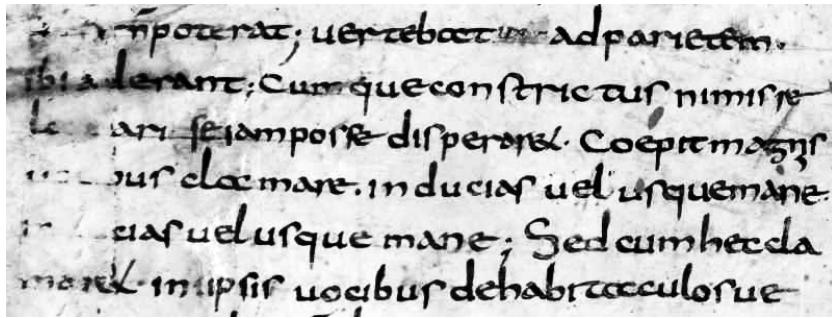 n̄ poterat; uertebat ad parietem.
ibi aderant; Cumque constrictus nimis re
se iam posse disperaret. Coepit magnis
clamare. inducias uel usque mane.
uel usque mane; Sed cum hec cla
maret. in ipsis uocibus de habitaculo sue